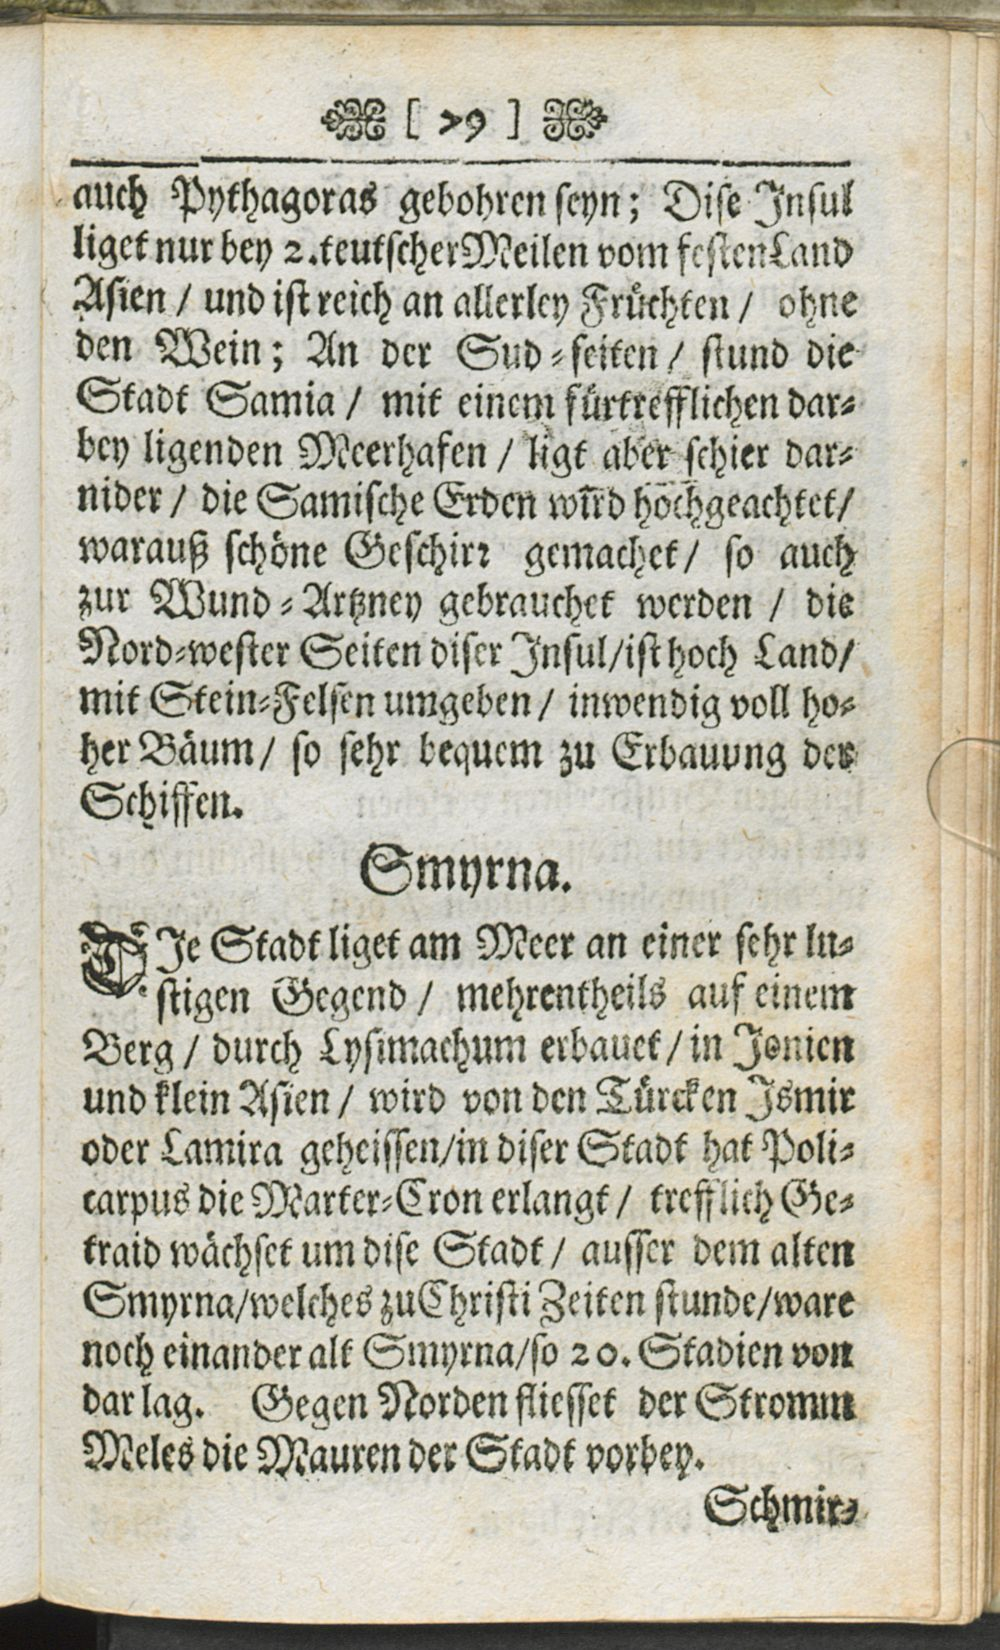 [ 79 ]
auch Pythagoras gebohren seyn; Dise Insul
liget nur bey 2. teutscher Meilen vom festen Land
Asien / und ist reich an allerley Früchten / ohne
den Wein; An der Sud-seiten / stund die
Stadt Samia / mit einem fürtrefflichen dar-
bey ligenden Meerhafen / ligt aber schier dar-
nider / die Samische Erden wird hochgeachtet/
warauß schöne Geschirr gemachet / so auch
zur Wund-Artzney gebrauchet werden / die
Nord-wester Seiten diser Insul/ist hoch Land/
mit Stein-Felsen umgeben / inwendig voll ho-
her Bäum / so sehr bequem zu Erbauung der
Schiffen.
Smyrna.
DIe Stadt liget am Meer an einer sehr lu-
stigen Gegend / mehrentheils auf einem
Berg / durch Lysimachum erbauet / in Jonien
und klein Asien / wird von den Türcken Ismir
oder Lamira geheissen/in diser Stadt hat Poli-
carpus die Marter-Cron erlangt / trefflich Ge-
traid wächset um dise Stadt / ausser dem alten
Smyrna/welches zu Christi Zeiten stunde/ware
noch einander alt Smyrna/so 20. Stadien von
dar lag. Gegen Norden fliesset der Stromm
Meles die Mauren der Stadt vorbey.
Schmir-